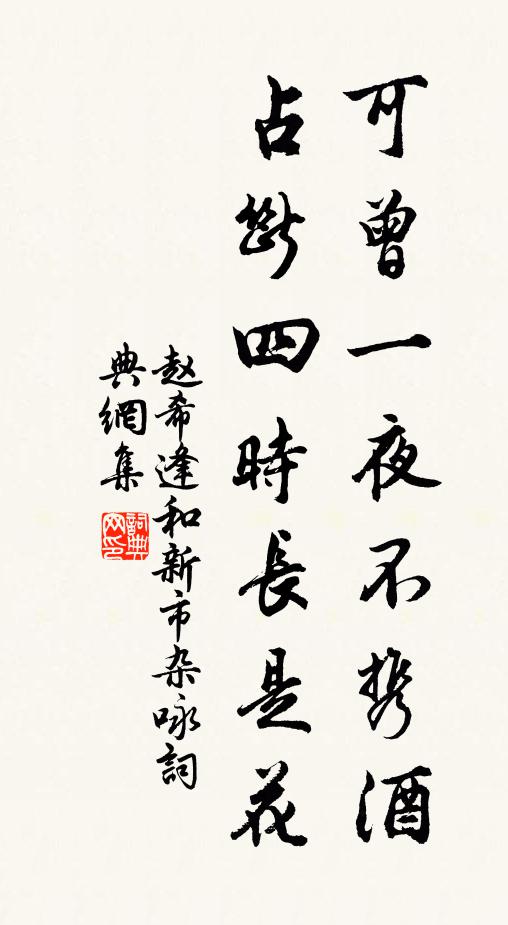 可曾一夜不携酒
占斷四時長是花
赵希逢和新市杂咏詞
典網集
詞典网印